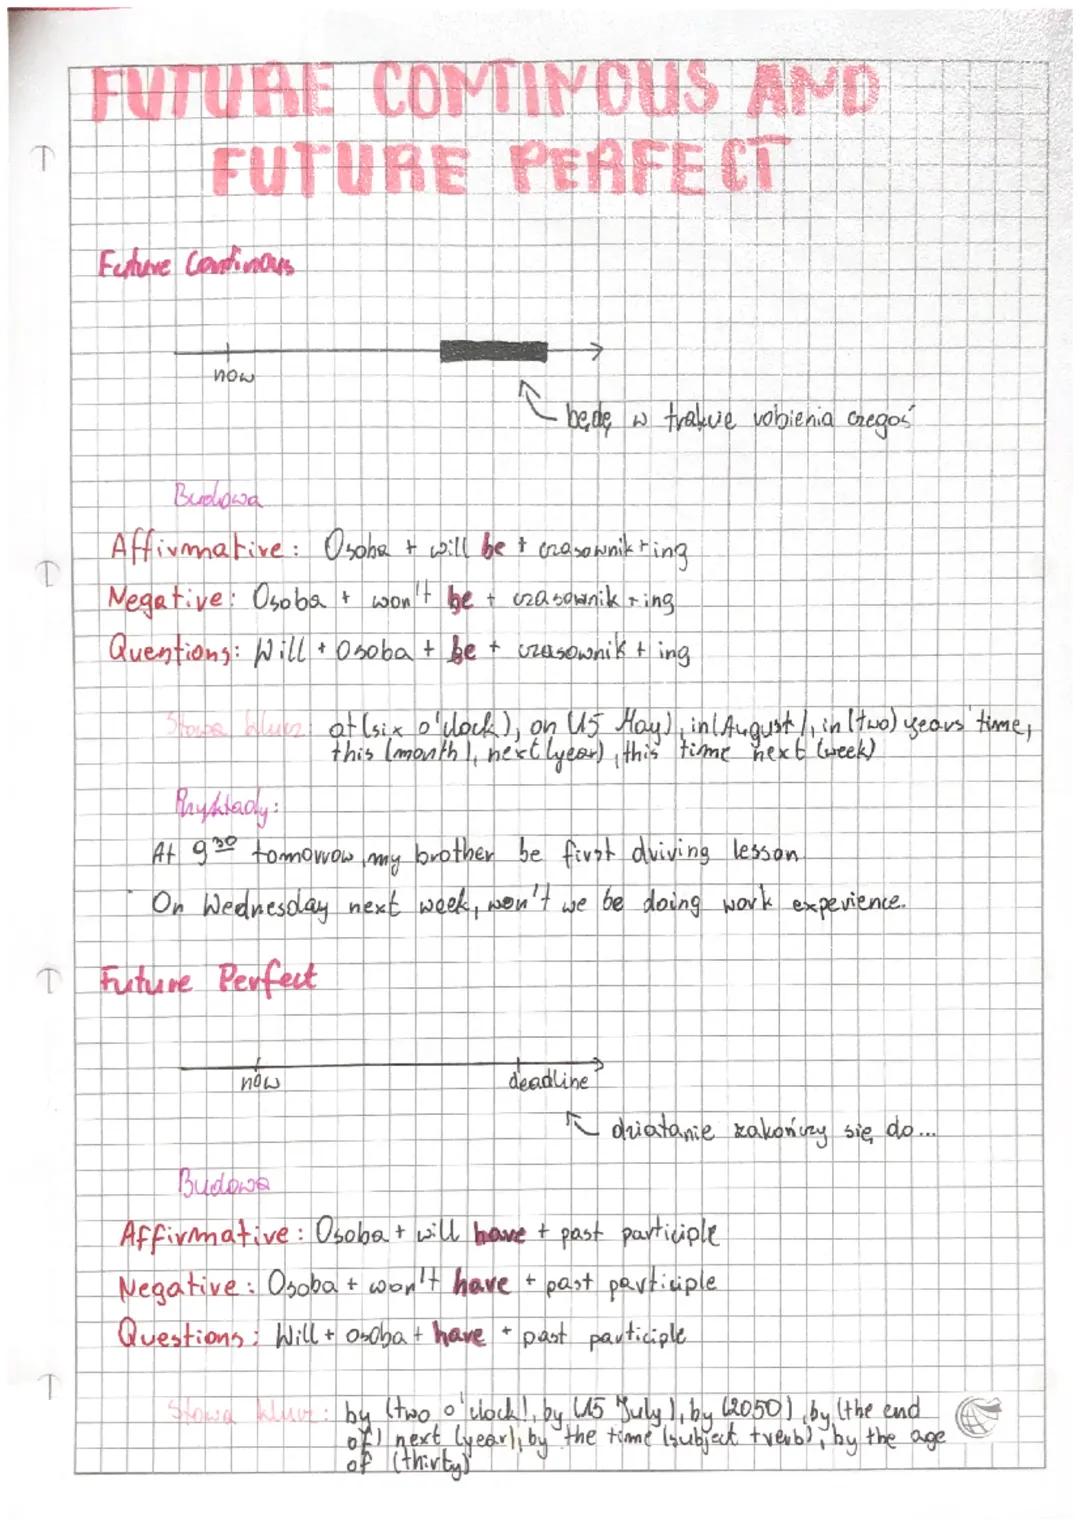 FUTURE CONTINOUS AND
FUTURE PERFECT
Future Continous
now
będę w trakcie robienia czegoś
Budowa
Affirmative: Osoba + will be + czasownik + ing
Negative: Osoba + won't be + czasownik + ing
Questions: Will + Osoba + be + czasownik + ing
Słowa klucz: at (six o'clock), on (15 May), in (August), in (two) years' time,
this (month), next (year), this time next (week)
Przykłady:
At 9³⁰ tomorrow, my brother be first driving lesson.
On Wednesday next week, won't we be doing work experience.
Future Perfect
now
deadline
działanie zakończy się do...
Budowa
Affirmative: Osoba + will have + past participle
Negative: Osoba + won't have + past participle
Questions: Will + osoba + have + past participle
Słowa klucz: by (two o'clock), by (15 July), by (2050), by (the end
of) next (year), by the time (subject + verb), by the age
of (thirty)